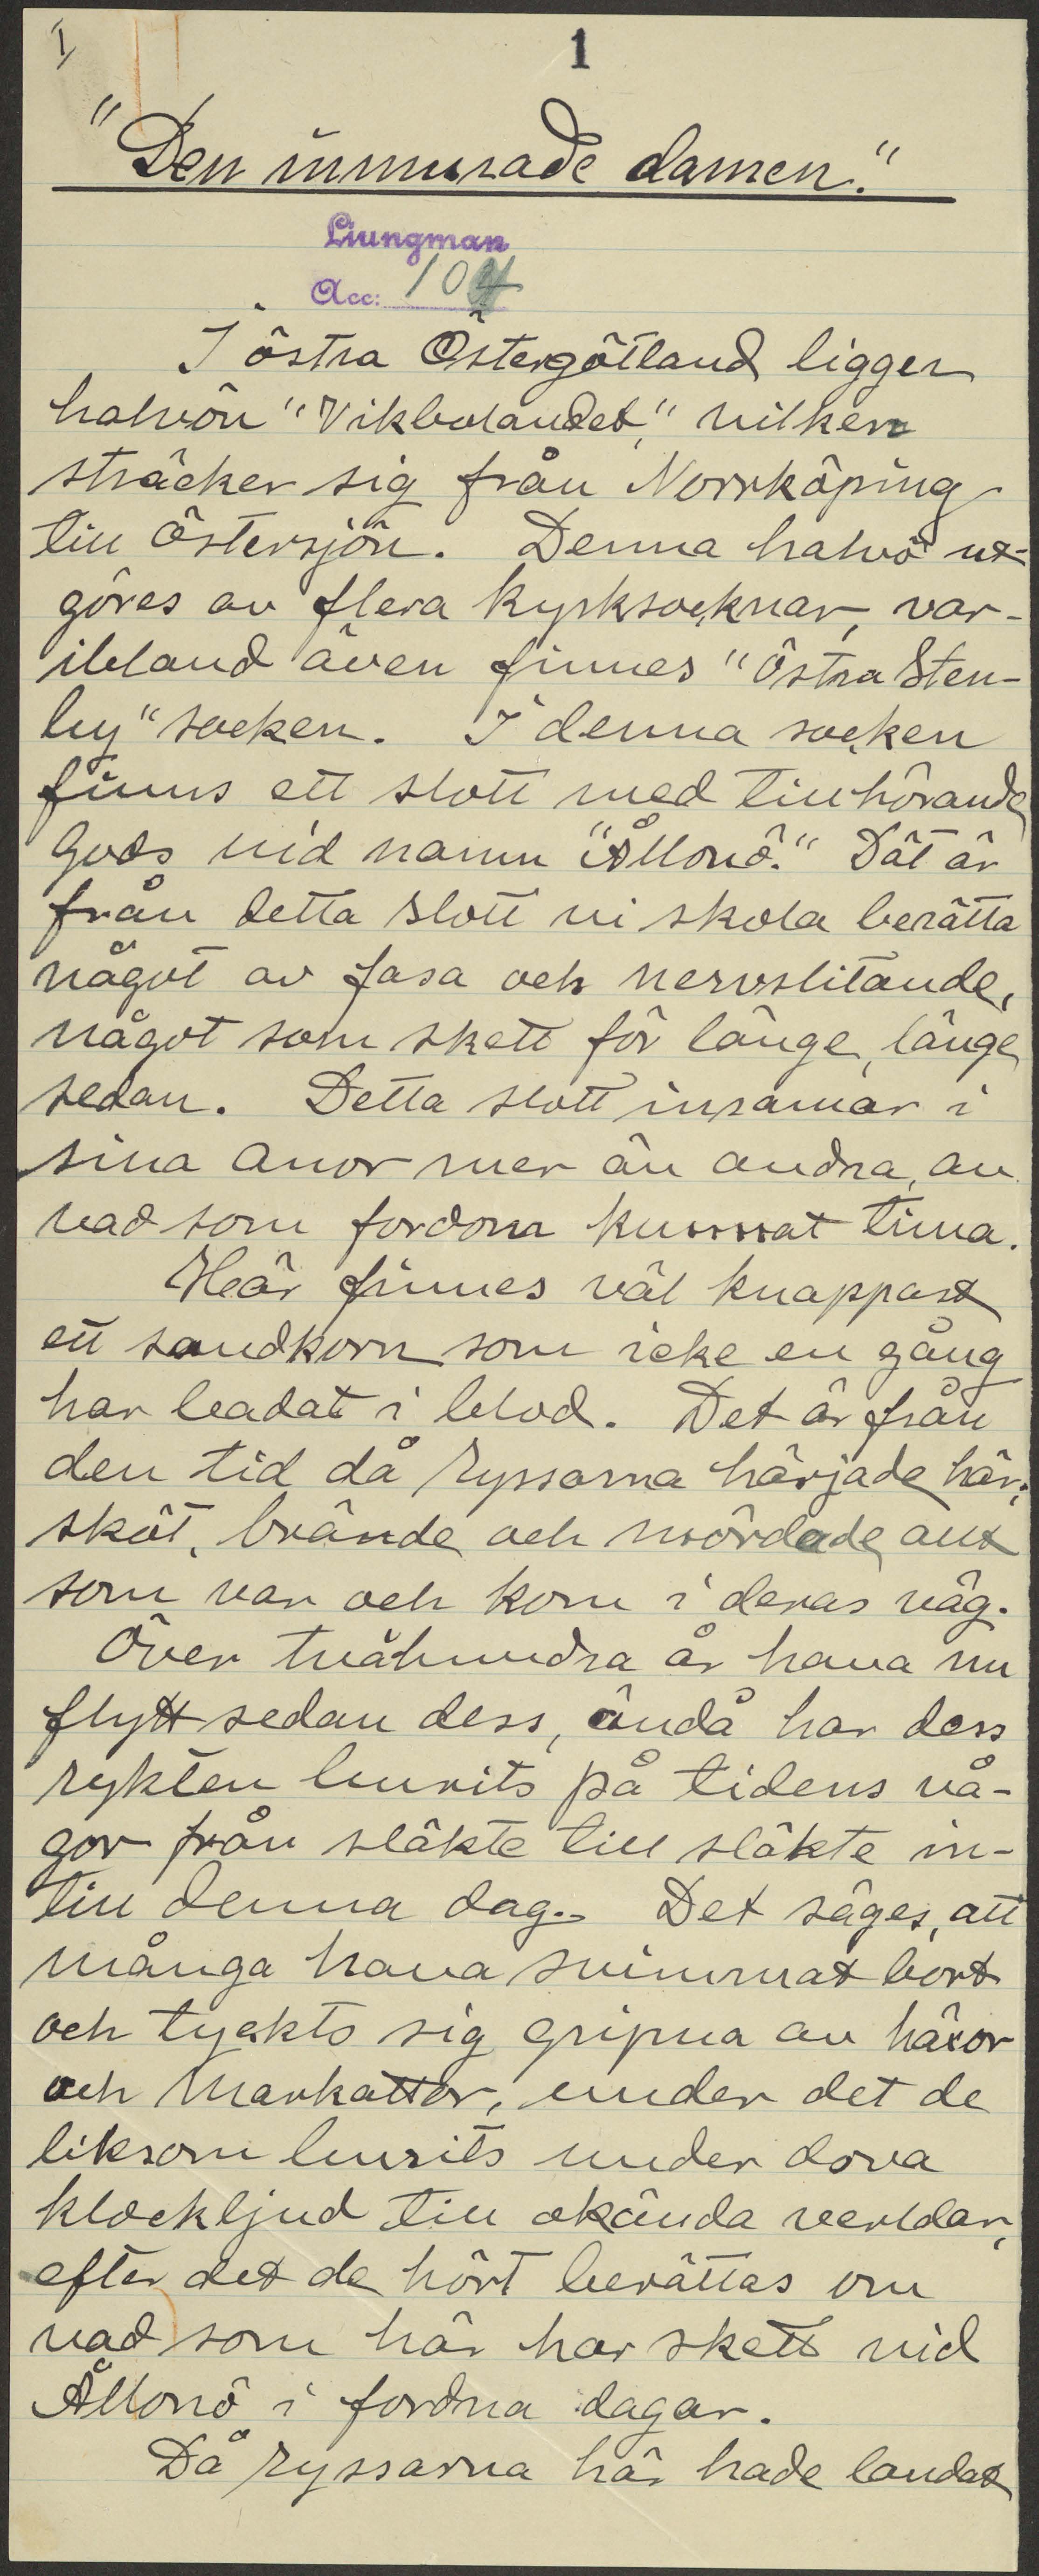 1
1
"Den inmurade damen."
Liungman
Acc: 104
I östra Östergötland ligger
halvön "Vikbolandet," vilken
sträcker sig från Norrköping
till Östersjön. Denna halvö ut-
göres av flera kyrksocknar, var-
ibland även finnes "Östra Sten-
by" socken. I denna socken
finns ett slott med tillhörande
Gods vid namn "Ållonö." Dät är
från detta slott vi skola berätta
något av fasa och nervslitande,
något som skett för länge, länge
sedan. Detta slott insamar i
sina anor mer än andra, av
vad som fordom kunnat tima.
Heär finnes väl knappast
ett sandkorn som icke en gång
har badat i blod. Det är från
den tid då ryssarna härjade här;
sköt, brände och mördade allt
som var och kom i deras väg.
Över tvåhundra år hava nu
flytt sedan dess, ändå har dess
rykten burits på tidens vå-
gor från släkte till släkte in-
till denna dag. Det säges, att
många hava svimmat bort
och tyckts sig gripna av häxor
och Markattor, under det de
liksom burits under dova
klockljud till okända verldar,
efter det de hört berättas om
vad som här har skett vid
Ållonö i fordna dagar.
Då ryssarna här hade landat